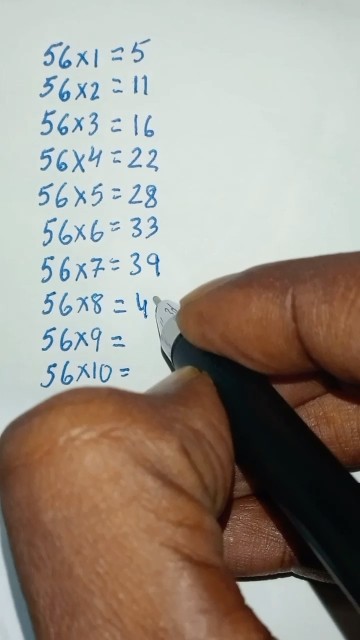 56×1=5
56×2=11
56×3=16
56×4=22
56×5=28
56×6=33
56×7=39
56×8=4
56×9=
56×10=